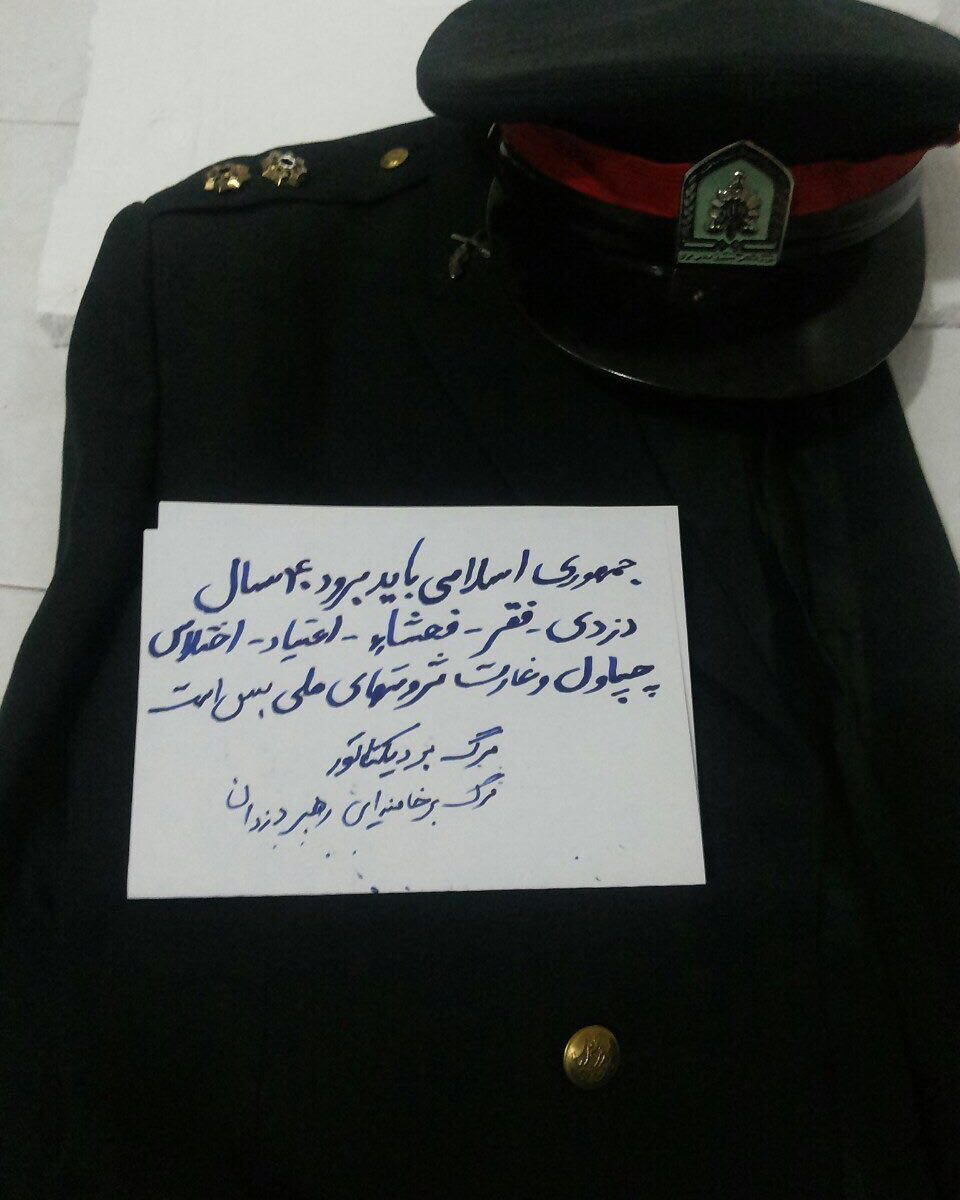 جمهوری اسلامی باید برود ۴۰ سال
دزدی - فقر - فحشاء - اعتیاد - اختلاس
چپاول و غارت ثروتهای ملی بس است
مرگ بر دیکتاتور
مرگ بر خامنه‌ای رهبر دزدان